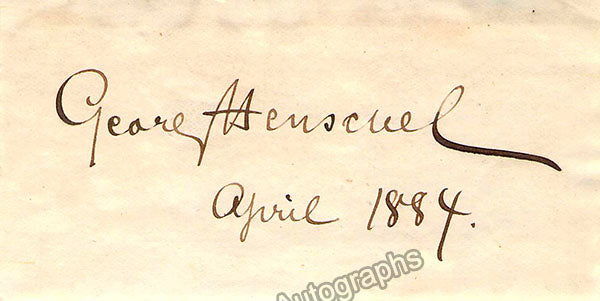 Georg Henschel
April 1884.
Autographs